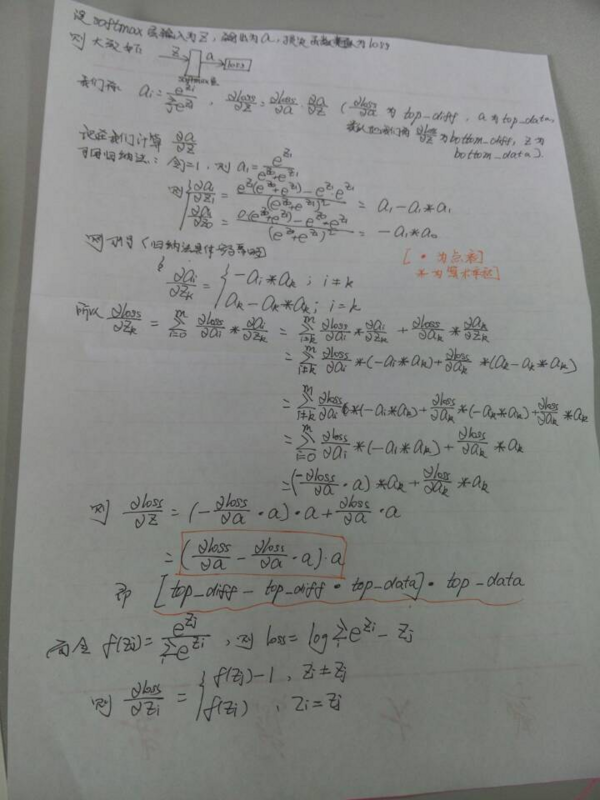 设softmax层输入为Z,输出为a,损失函数为loss
则大致如:
Z → a → loss
softmax层
我们有 a_i = e^{Z_i} / Σ_j e^{Z_j} , ∂loss/∂Z = ∂loss/∂a · ∂a/∂Z ( ∂loss/∂a 为 top_diff, a 为 top_data,
∂loss/∂Z 为 bottom_diff, Z 为
bottom_data).
我们计算 ∂a/∂Z
可用归纳法: 令i=1, 则 a_1 = e^{Z_1} / (e^{Z_0}+e^{Z_1})
则 { ∂a_1/∂Z_1 = (e^{Z_1}(e^{Z_0}+e^{Z_1}) - e^{Z_1}·e^{Z_1}) / (e^{Z_0}+e^{Z_1})^2 = a_1 - a_1*a_1
∂a_1/∂Z_0 = (0·(e^{Z_0}+e^{Z_1}) - e^{Z_0}·e^{Z_1}) / (e^{Z_0}+e^{Z_1})^2 = -a_1*a_0
则可得(归纳法具体
[ · 为点乘
* 为算术乘法 ]
∂a_i/∂Z_k = { -a_i*a_k ; i≠k
a_k - a_k*a_k ; i=k
所以 ∂loss/∂Z_k = Σ_{i=0}^m ∂loss/∂a_i * ∂a_i/∂Z_k = Σ_{i≠k}^m ∂loss/∂a_i * ∂a_i/∂Z_k + ∂loss/∂a_k * ∂a_k/∂Z_k
= Σ_{i≠k}^m ∂loss/∂a_i *(-a_i*a_k) + ∂loss/∂a_k *(a_k-a_k*a_k)
= Σ_{i≠k}^m ∂loss/∂a_i *(-a_i*a_k) + ∂loss/∂a_k *(-a_k*a_k) + ∂loss/∂a_k * a_k
= Σ_{i=0}^m ∂loss/∂a_i *(-a_i*a_k) + ∂loss/∂a_k * a_k
= (-∂loss/∂a · a) * a_k + ∂loss/∂a_k * a_k
则 ∂loss/∂Z = (-∂loss/∂a · a)·a + ∂loss/∂a · a
= (∂loss/∂a - ∂loss/∂a · a)·a
即 [top_diff - top_diff · top_data] · top_data
而令 f(Z_j) = e^{Z_j} / Σ_i e^{Z_i} , 则 loss = log Σ_i e^{Z_i} - Z_j
则 ∂loss/∂Z_i = { f(Z_j)-1 , Z_i≠Z_j
f(Z_j) , Z_i=Z_j